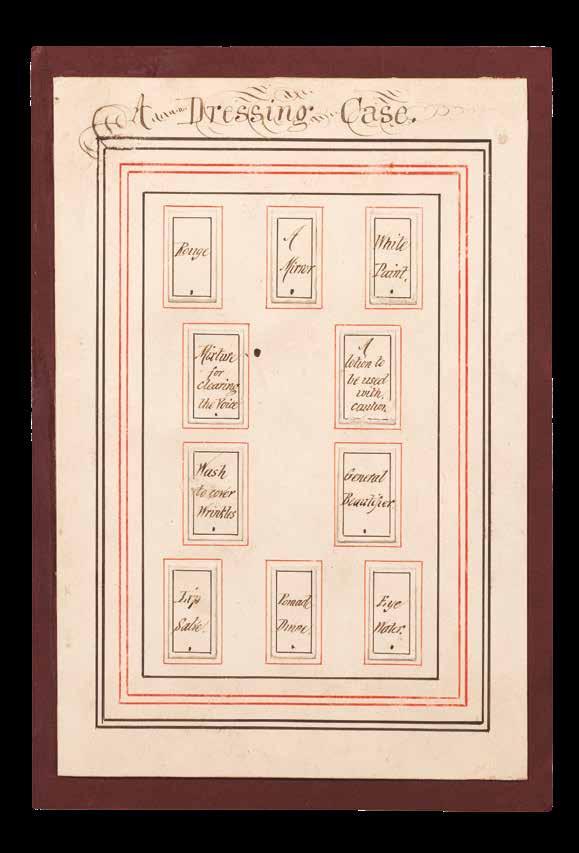 A Dressing Case.
Rouge
A
Mirror
White
Paint.
Mixture
for
clearing
the Voice
A
lotion to
be used
with
caution.
Wash
to cover
Wrinkles
General
Beautifier
Lip
Salve.
Pomade
Divine.
Eye
Water.